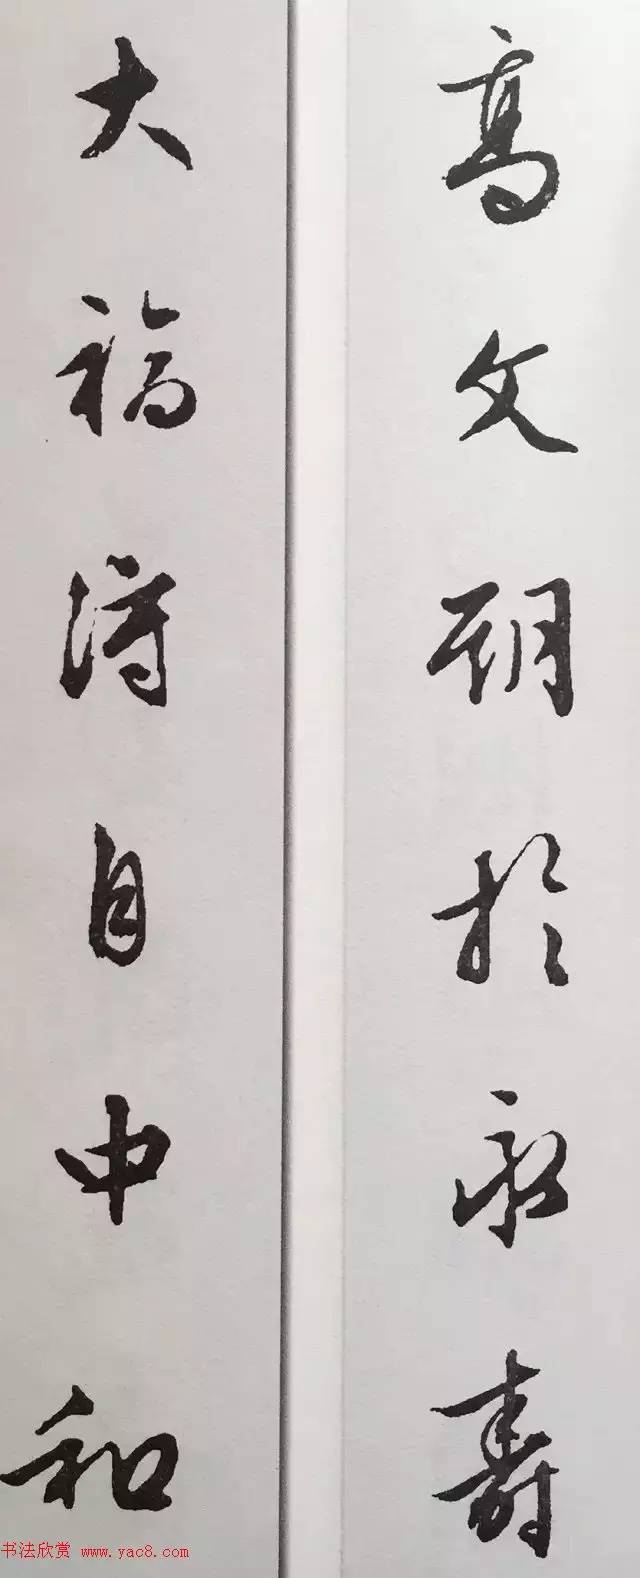 高文期於永壽
大福得自中和
书法欣赏 www.yac8.com